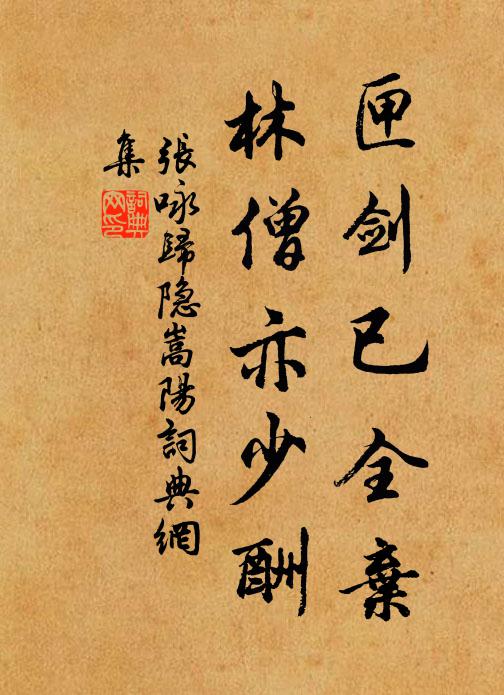 匣剑已全棄
林僧亦少酬
張咏歸隐嵩陽詞典網
集
詞典
网印